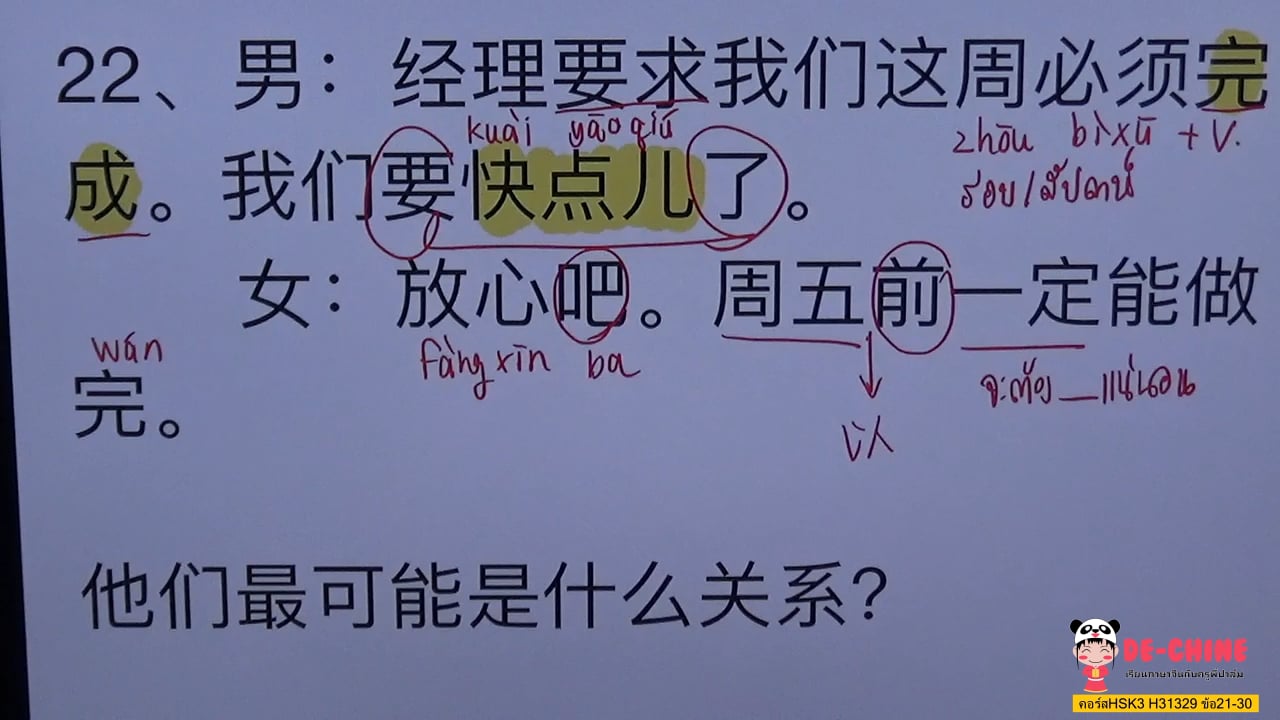 22、男：经理要求我们这周必须完
kuài yāo qiú zhōu bìxū + V.
รอบ/สัปดาห์
成。我们要快点儿了。
女：放心吧。周五前一定能做
wán fàng xīn ba จะต้อง __ แน่นอน
完。
以
他们最可能是什么关系？
DE-CHINE
เรียนภาษาจีนกับครูพี่ป่าส้ม
คอร์สHSK3 H31329 ข้อ21-30